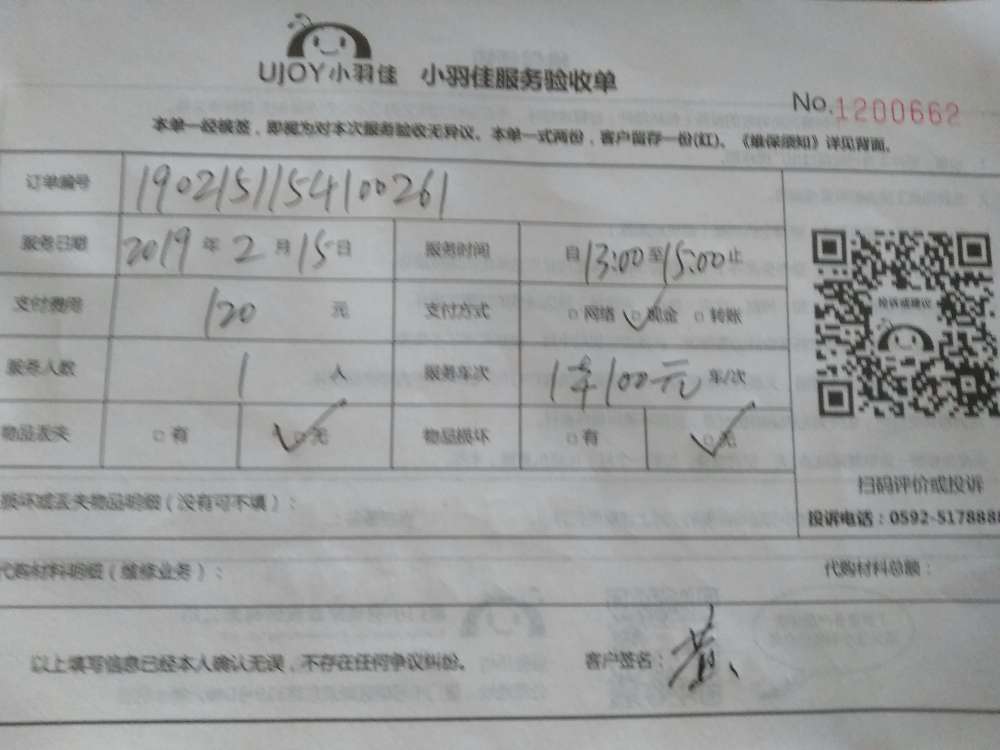 UJOY小羽佳 小羽佳服务验收单
No.1200662
本单一经核签，即视为对本次服务验收无异议。本单一式两份，客户留存一份(红)。《维保须知》详见背面。
订单编号 1902151154100261
服务日期 2019年2月15日 服务时间 自13:00至15:00止
支付费用 120元 支付方式 □网络 ☑现金 □转账
服务人数 1人 服务车次 1车100元 车/次
物品丢失 □有 ☑无 物品损坏 □有 ☑无
投诉或建议
扫码评价或投诉
投诉电话：0592-5178888
损坏或丢失物品明细（没有可不填）：
代购材料明细（维修业务）： 代购材料总额：
以上填写信息已经本人确认无误，不存在任何争议纠纷。 客户签名：黄